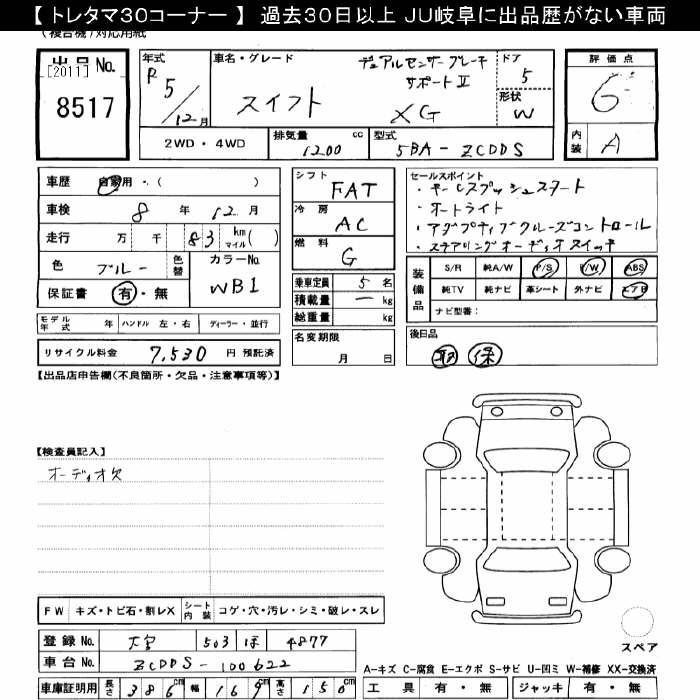 【 トレタマ30コーナー 】 過去30日以上 JU岐阜に出品歴がない車両
(複合機)対応用紙
出品 No.
[2011]
8517
年式
R 5/12月
車名・グレード
デュアルセンサーブレーキ
サポートⅡ
スイフト XG
ドア
5
形状
W
2WD・4WD
排気量 1200 cc
型式 5BA-ZCDDS
評価点
6
内装 A
車歴 自家用・( )
車検 8 年 12 月
走行 万 千 83 km マイル( )
色 ブルー 色替
カラーNo. WB1
保証書 有・無
モデル年式 年 ハンドル 左・右 ディーラー・並行
リサイクル料金 7,530 円 預託済
シフト FAT
冷房 AC
燃料 G
乗車定員 5 名
積載量 ー kg
総重量 kg
名変期限
月 日
セールスポイント
・キーレスプッシュスタート
・オートライト
・アダプティブクルーズコントロール
・ステアリングオーディオスイッチ
装備品
S/R 純A/W P/S P/W ABS
純TV 純ナビ 革シート 外ナビ エアB
ナビ型番：
後日品
取 保
【出品店申告欄(不良箇所・欠品・注意事項等)】
【検査員記入】
オーディオ欠
FW キズ・トビ石・割レX シート内装 コゲ・穴・汚レ・シミ・破レ・スレ
登録 No. 大宮 503 ほ 4877
車台 No. ZCDDS-100622
車庫証明用 長さ 386cm 幅 169cm 高さ 150cm
スペア
A-キズ C-腐食 E-エクボ S-サビ U-凹ミ W-補修 XX-交換済
工具 有・無 ジャッキ 有・無